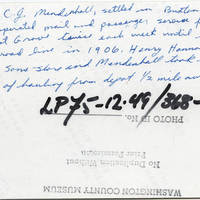 C.J. Mendenhall, settled in Buxton
operated mail and passenger service f
st Grove twice each week until
road line in 1906. Henry Hanna
Sons-slow and Mendenhall took
of hauling from depot 1/2 mile aw
LP75-12.49/368-
PHOTO ID No.
No Duplication Without
Prior Permission
WASHINGTON COUNTY MUSEUM